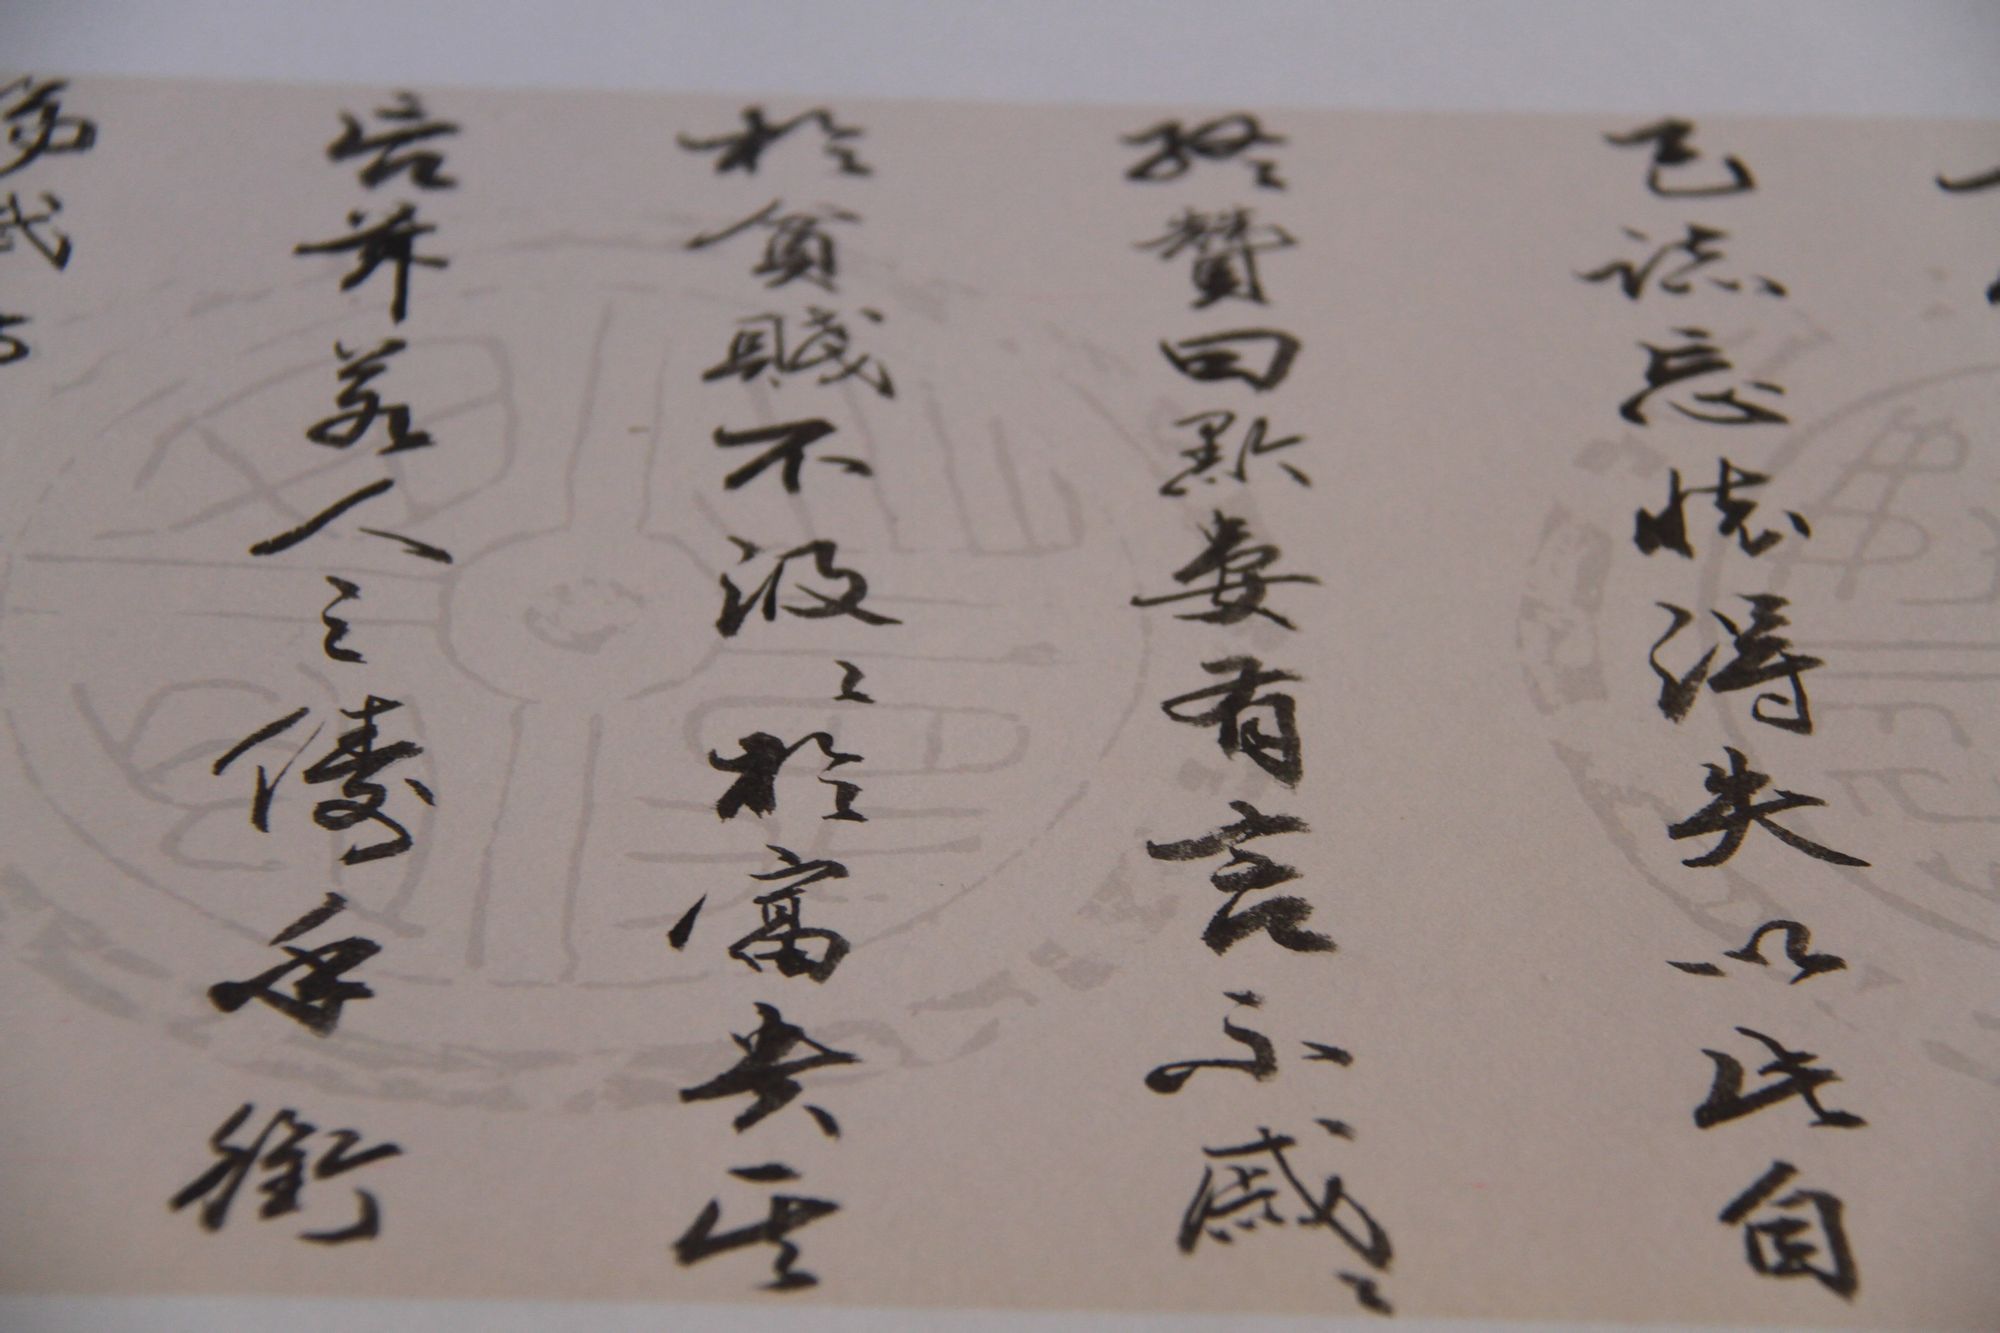 己誌忘懷得失以此自
終贊曰黔婁有言不戚々
於貧賤不汲々於富貴其
言茲若人之儔乎銜